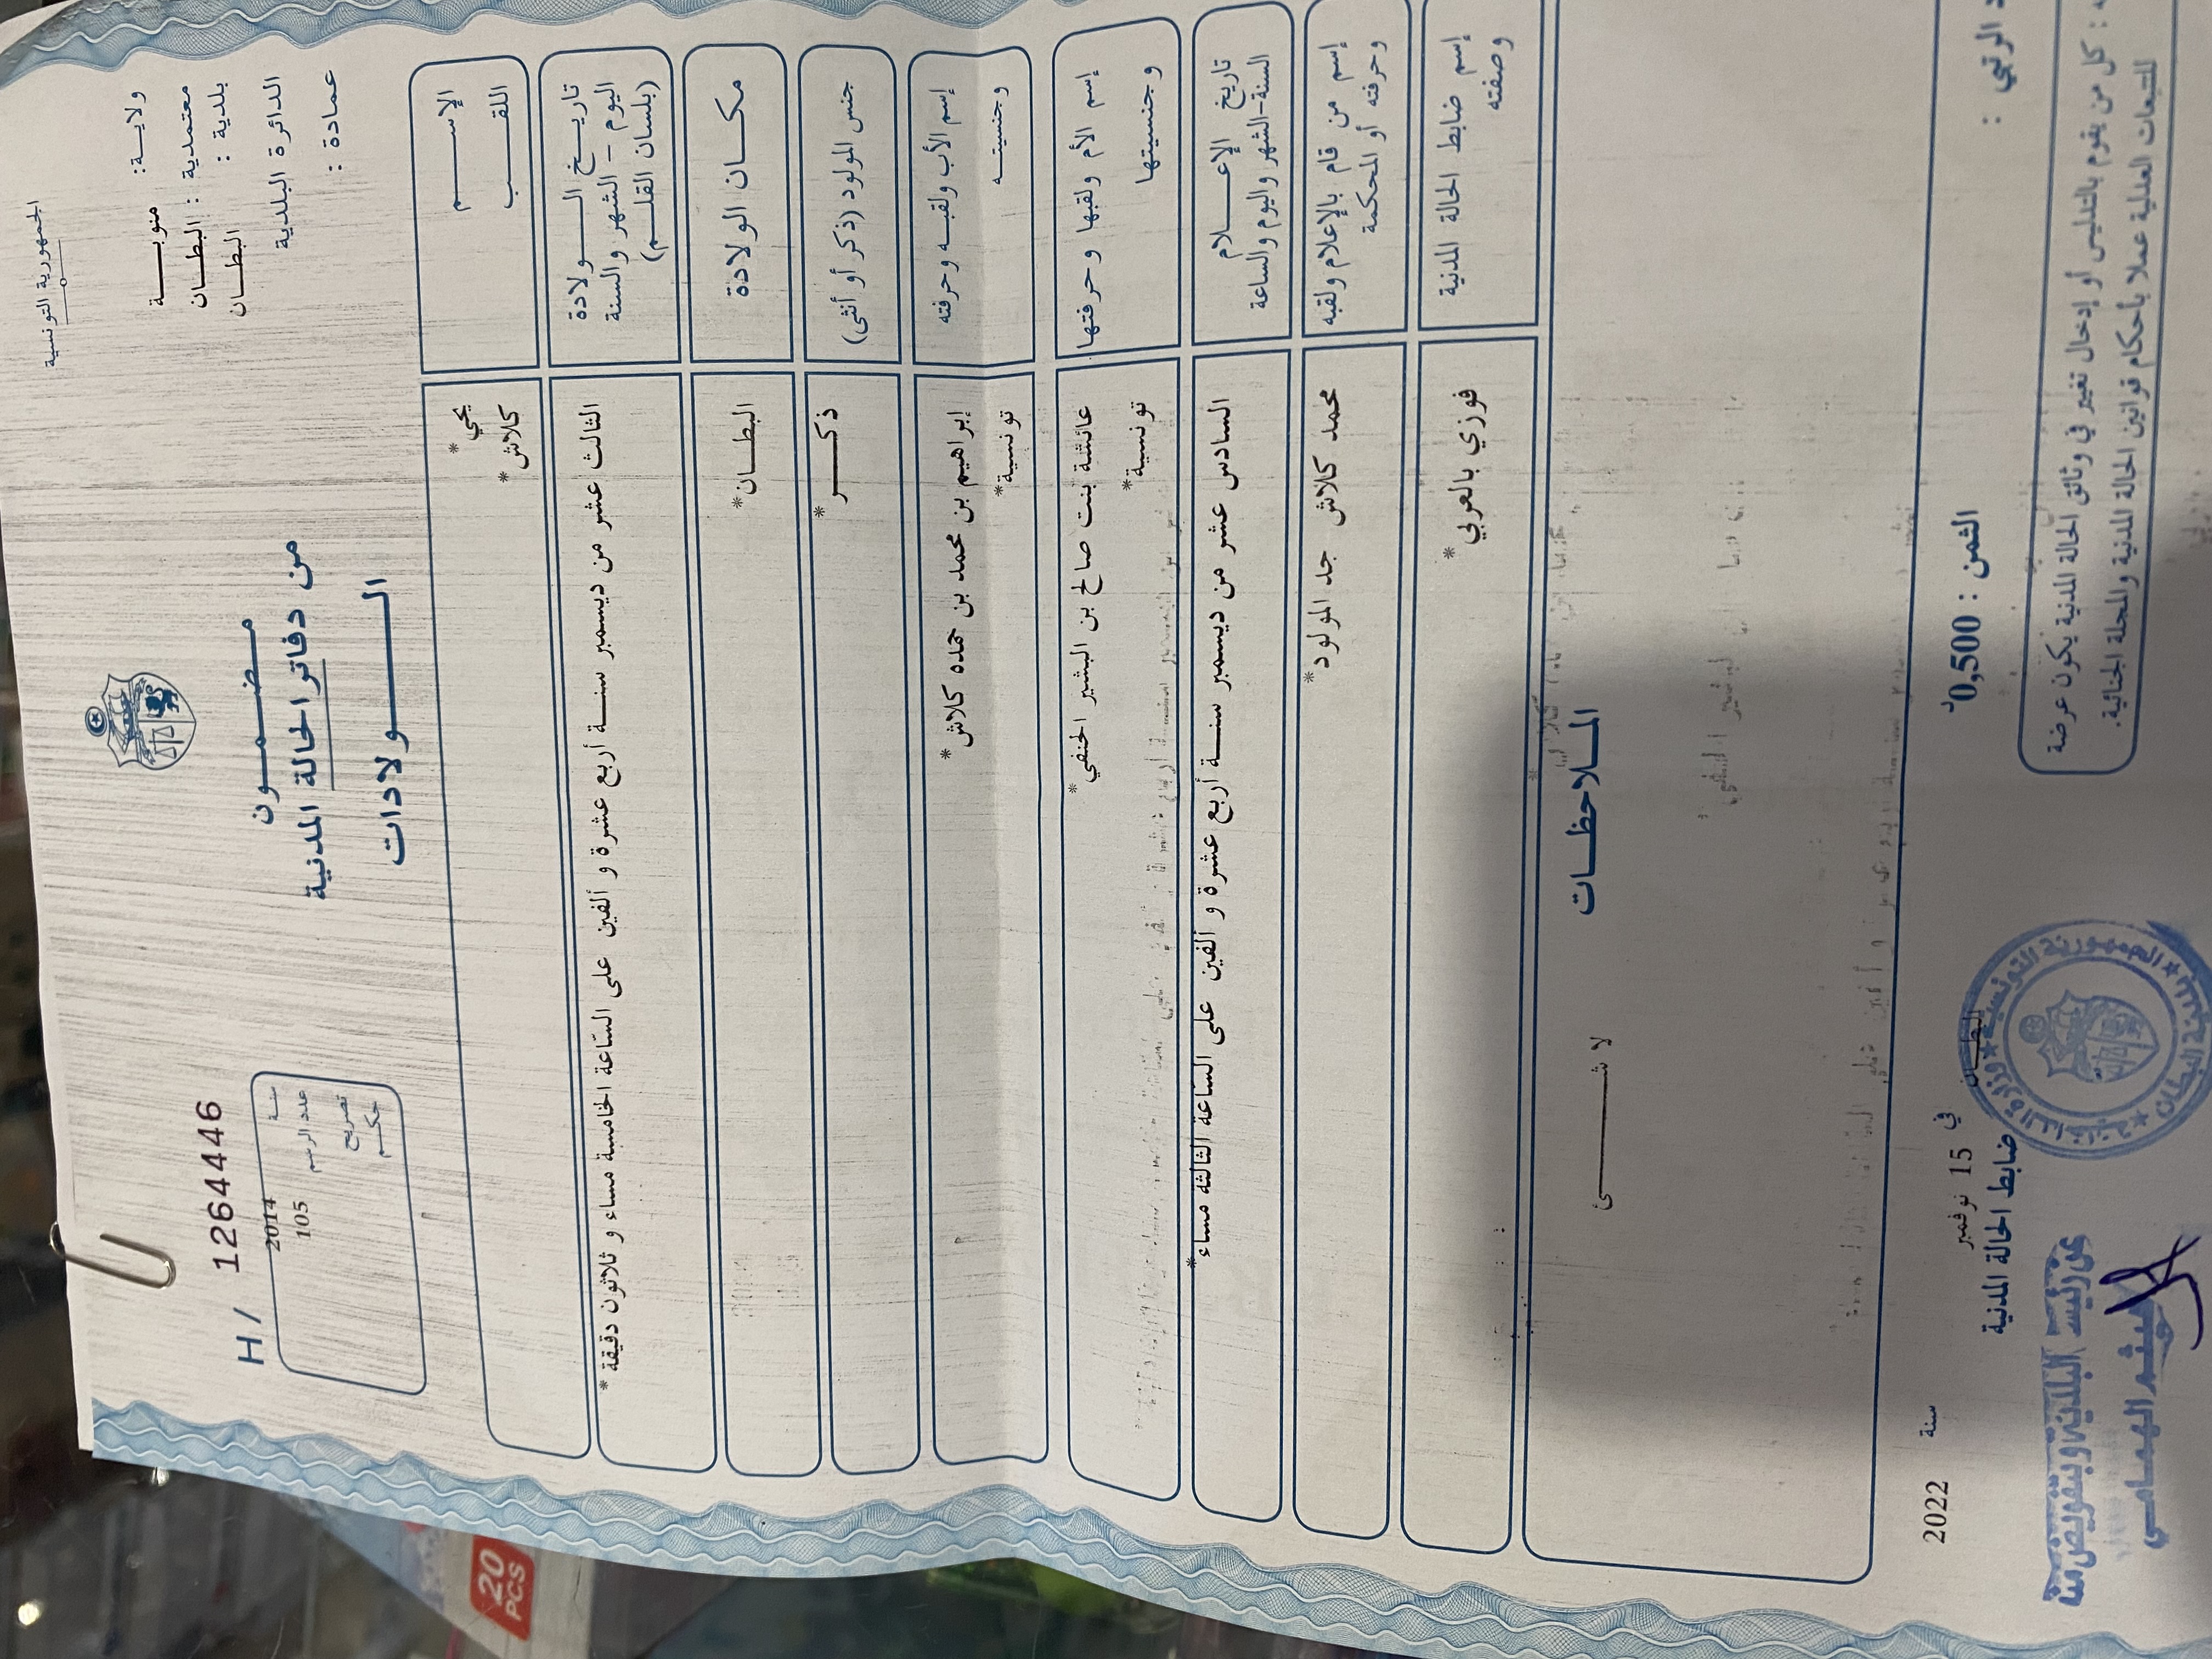 الجمهورية التونسية
ولاية: منوبة
معتمدية : البطان
بلدية : البطان
الدائرة البلدية
عمادة :
مضمون
من دفاتر الحالة المدنية
الولادات
H/ 1264446
سنة 2014
عدد الرسم 105
تصريح
حكم
الإسم
اللقب
يحي*
كلاش*
تاريخ الولادة
اليوم - الشهر والسنة
(بلسان القلم)
الثالث عشر من ديسمبر سنة أربع عشرة و ألفين على الساعة الخامسة مساء و ثلاثون دقيقة*
مكان الولادة
البطان*
جنس المولود (ذكر أو أنثى)
ذكر*
إسم الأب ولقبه وحرفته
وجنسيته
إبراهيم بن محمد بن حمده كلاش*
تونسية*
إسم الأم ولقبها وحرفتها
وجنسيتها
عائشة بنت صالح بن البشير الحنفي*
تونسية*
تاريخ الإعلام
السنة-الشهر واليوم والساعة
السادس عشر من ديسمبر سنة أربع عشرة و ألفين على الساعة الثالثة مساء*
إسم من قام بالإعلام ولقبه
وحرفته أو المحكمة
محمد كلاش جد المولود*
إسم ضابط الحالة المدنية
وصفته
فوزي بالعربي*
الملاحظات
لا شئ
البطان في 15 نوفمبر سنة 2022
ضابط الحالة المدنية
الثمن : 0,500د
عن رئيس البلدية وبتفويض منه
الهمامي
الجمهورية التونسية * وزارة الداخلية * بلدية البطان
كل من يقوم بالتدليس أو إدخال تغيير في وثائق الحالة المدنية يكون عرضة
للتبعات العدلية عملا بأحكام قوانين الحالة المدنية والمجلة الجنائية.
20
PCS